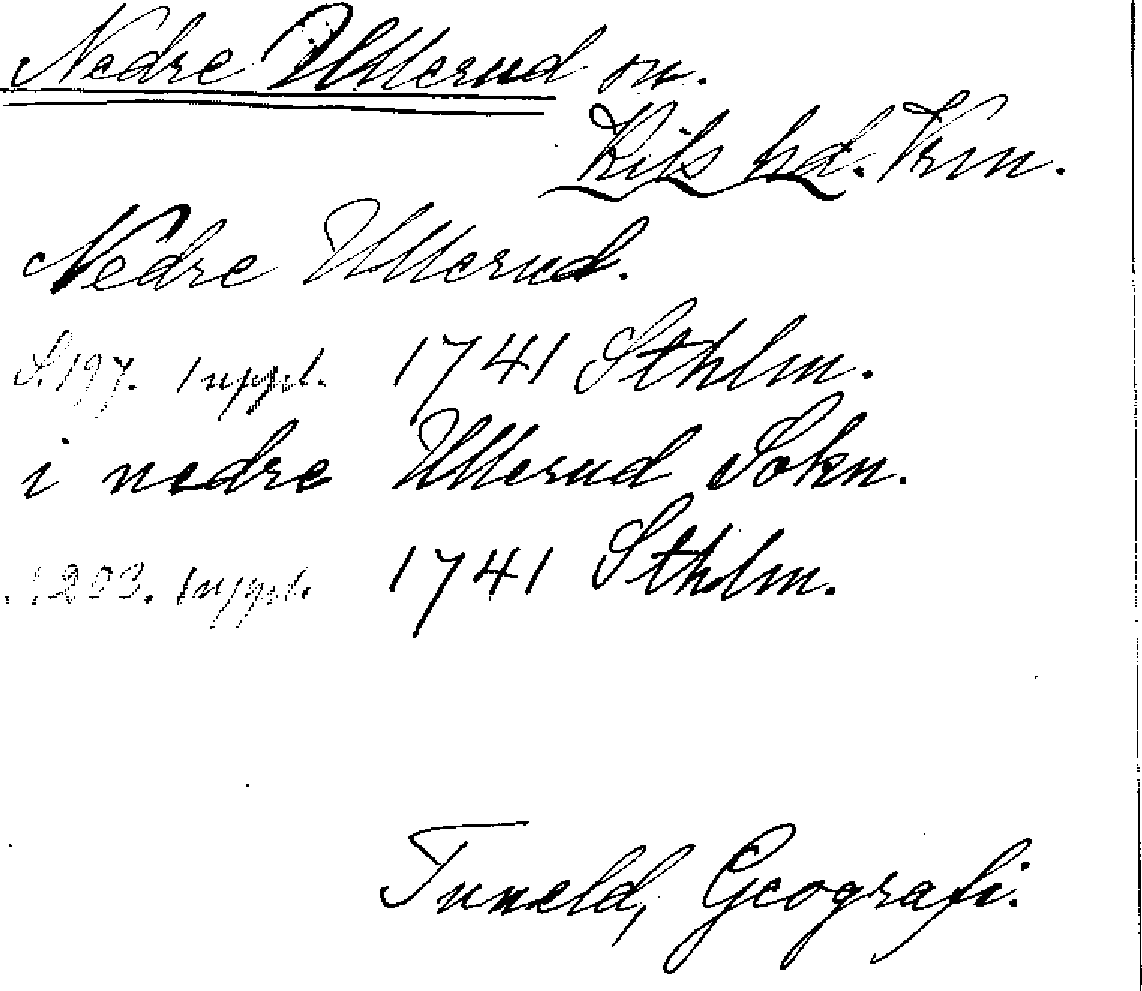 Nedre Ullerud sn.
Kils hd. Vrm.
Nedre Ullerud.
S. 197. suppl. 1741 Sthlm.
i nedre Ullerud Sokn.
S. 203. suppl. 1741 Sthlm.
Tuneld, Geografi.